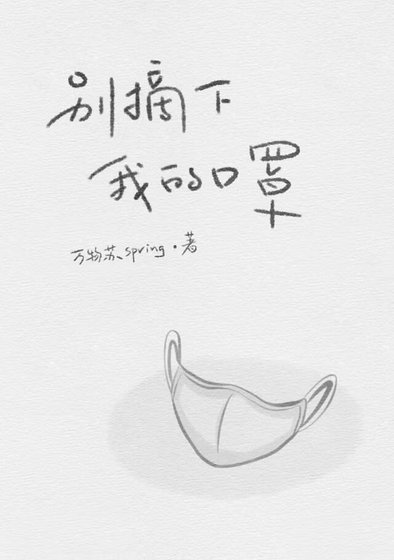 别摘下
我的口罩
万物苏_spring·著